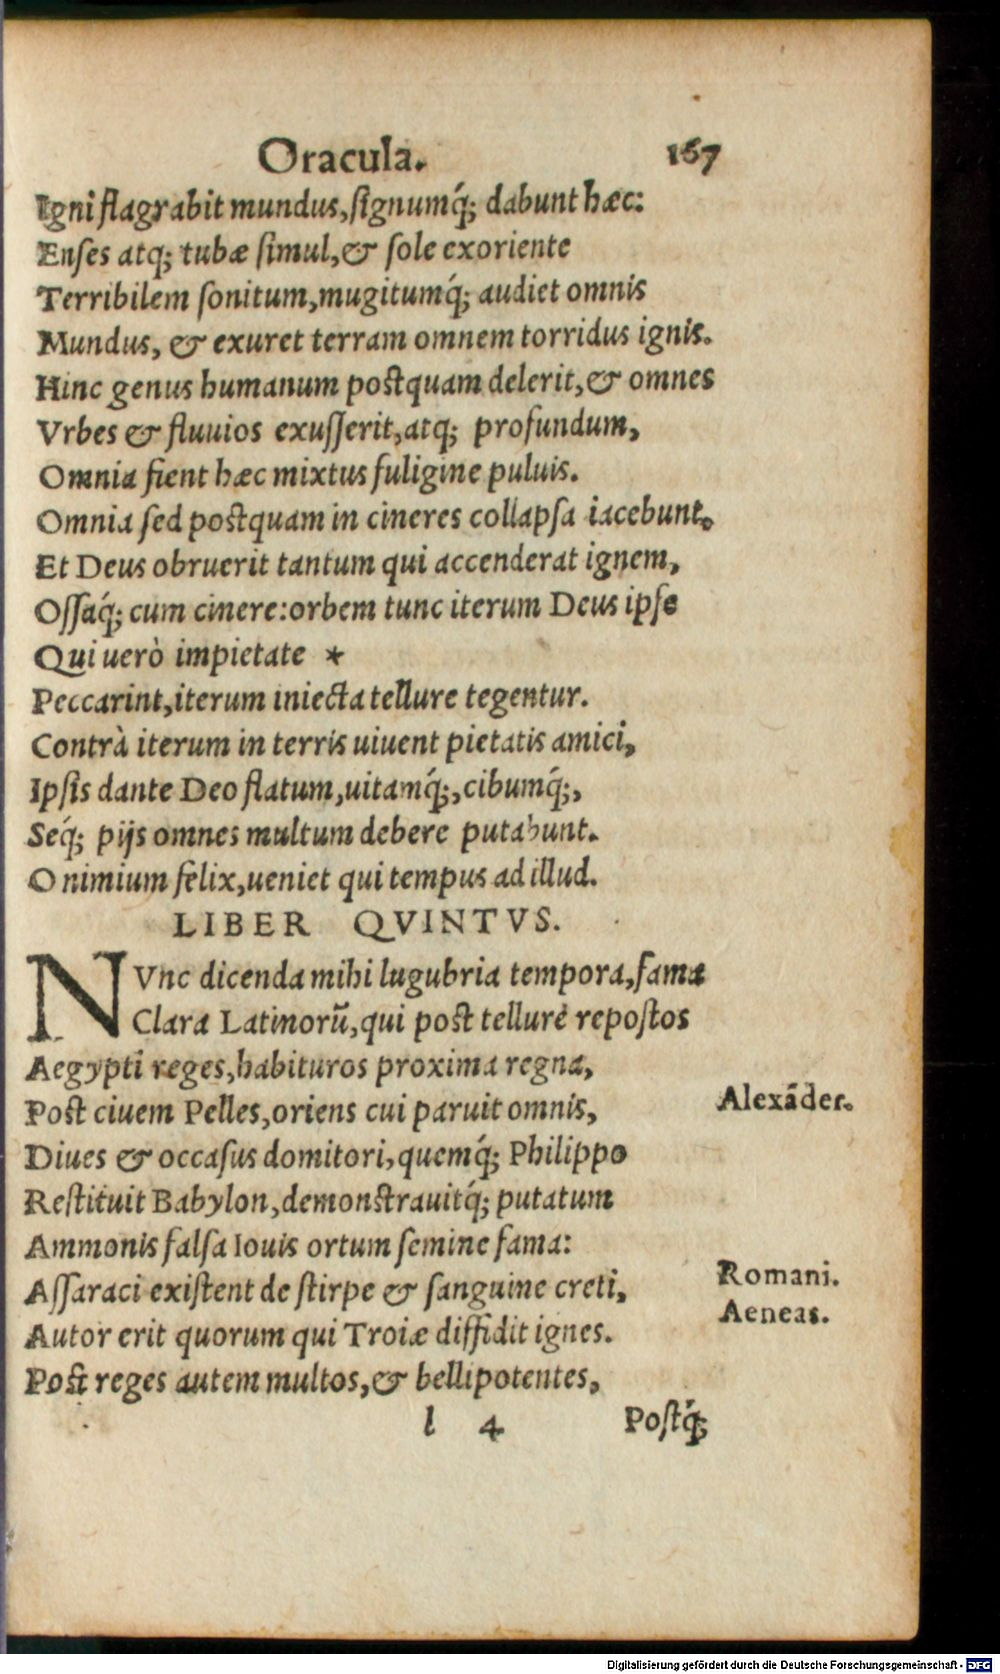 Oracula. 167
Igni flagrabit mundus, signumq́; dabunt hæc:
Enses atq; tubæ simul, & sole exoriente
Terribilem sonitum, mugitumq́; audiet omnis
Mundus, & exuret terram omnem torridus ignis.
Hinc genus humanum postquam delerit, & omnes
Vrbes & fluuios exusserit, atq; profundum,
Omnia fient hæc mixtus fuligine puluis.
Omnia sed postquam in cineres collapsa iacebunt.
Et Deus obruerit tantum qui accenderat ignem,
Ossaq́; cum cinere: orbem tunc iterum Deus ipse
Qui uerò impietate *
Peccarint, iterum iniecta tellure tegentur.
Contrà iterum in terris uiuent pietatis amici,
Ipsis dante Deo flatum, uitamq́;, cibumq́;,
Seq́; pijs omnes multum debere putabunt.
O nimium felix, ueniet qui tempus ad illud.
LIBER QVINTVS.
NVnc dicenda mihi lugubria tempora, fama
Clara Latinorū, qui post tellurē repostos
Aegypti reges, habituros proxima regna,
Post ciuem Pelles, oriens cui paruit omnis,
Alexāder.
Diues & occasus domitori, quemq́; Philippo
Restituit Babylon, demonstrauitq́; putatum
Ammonis falsa Iouis ortum semine fama:
Assaraci existent de stirpe & sanguine creti,
Romani.
Aeneas.
Autor erit quorum qui Troiæ diffidit ignes.
Post reges autem multos, & bellipotentes,
l 4 Postq́;
Digitalisierung gefördert durch die Deutsche Forschungsgemeinschaft - DFG